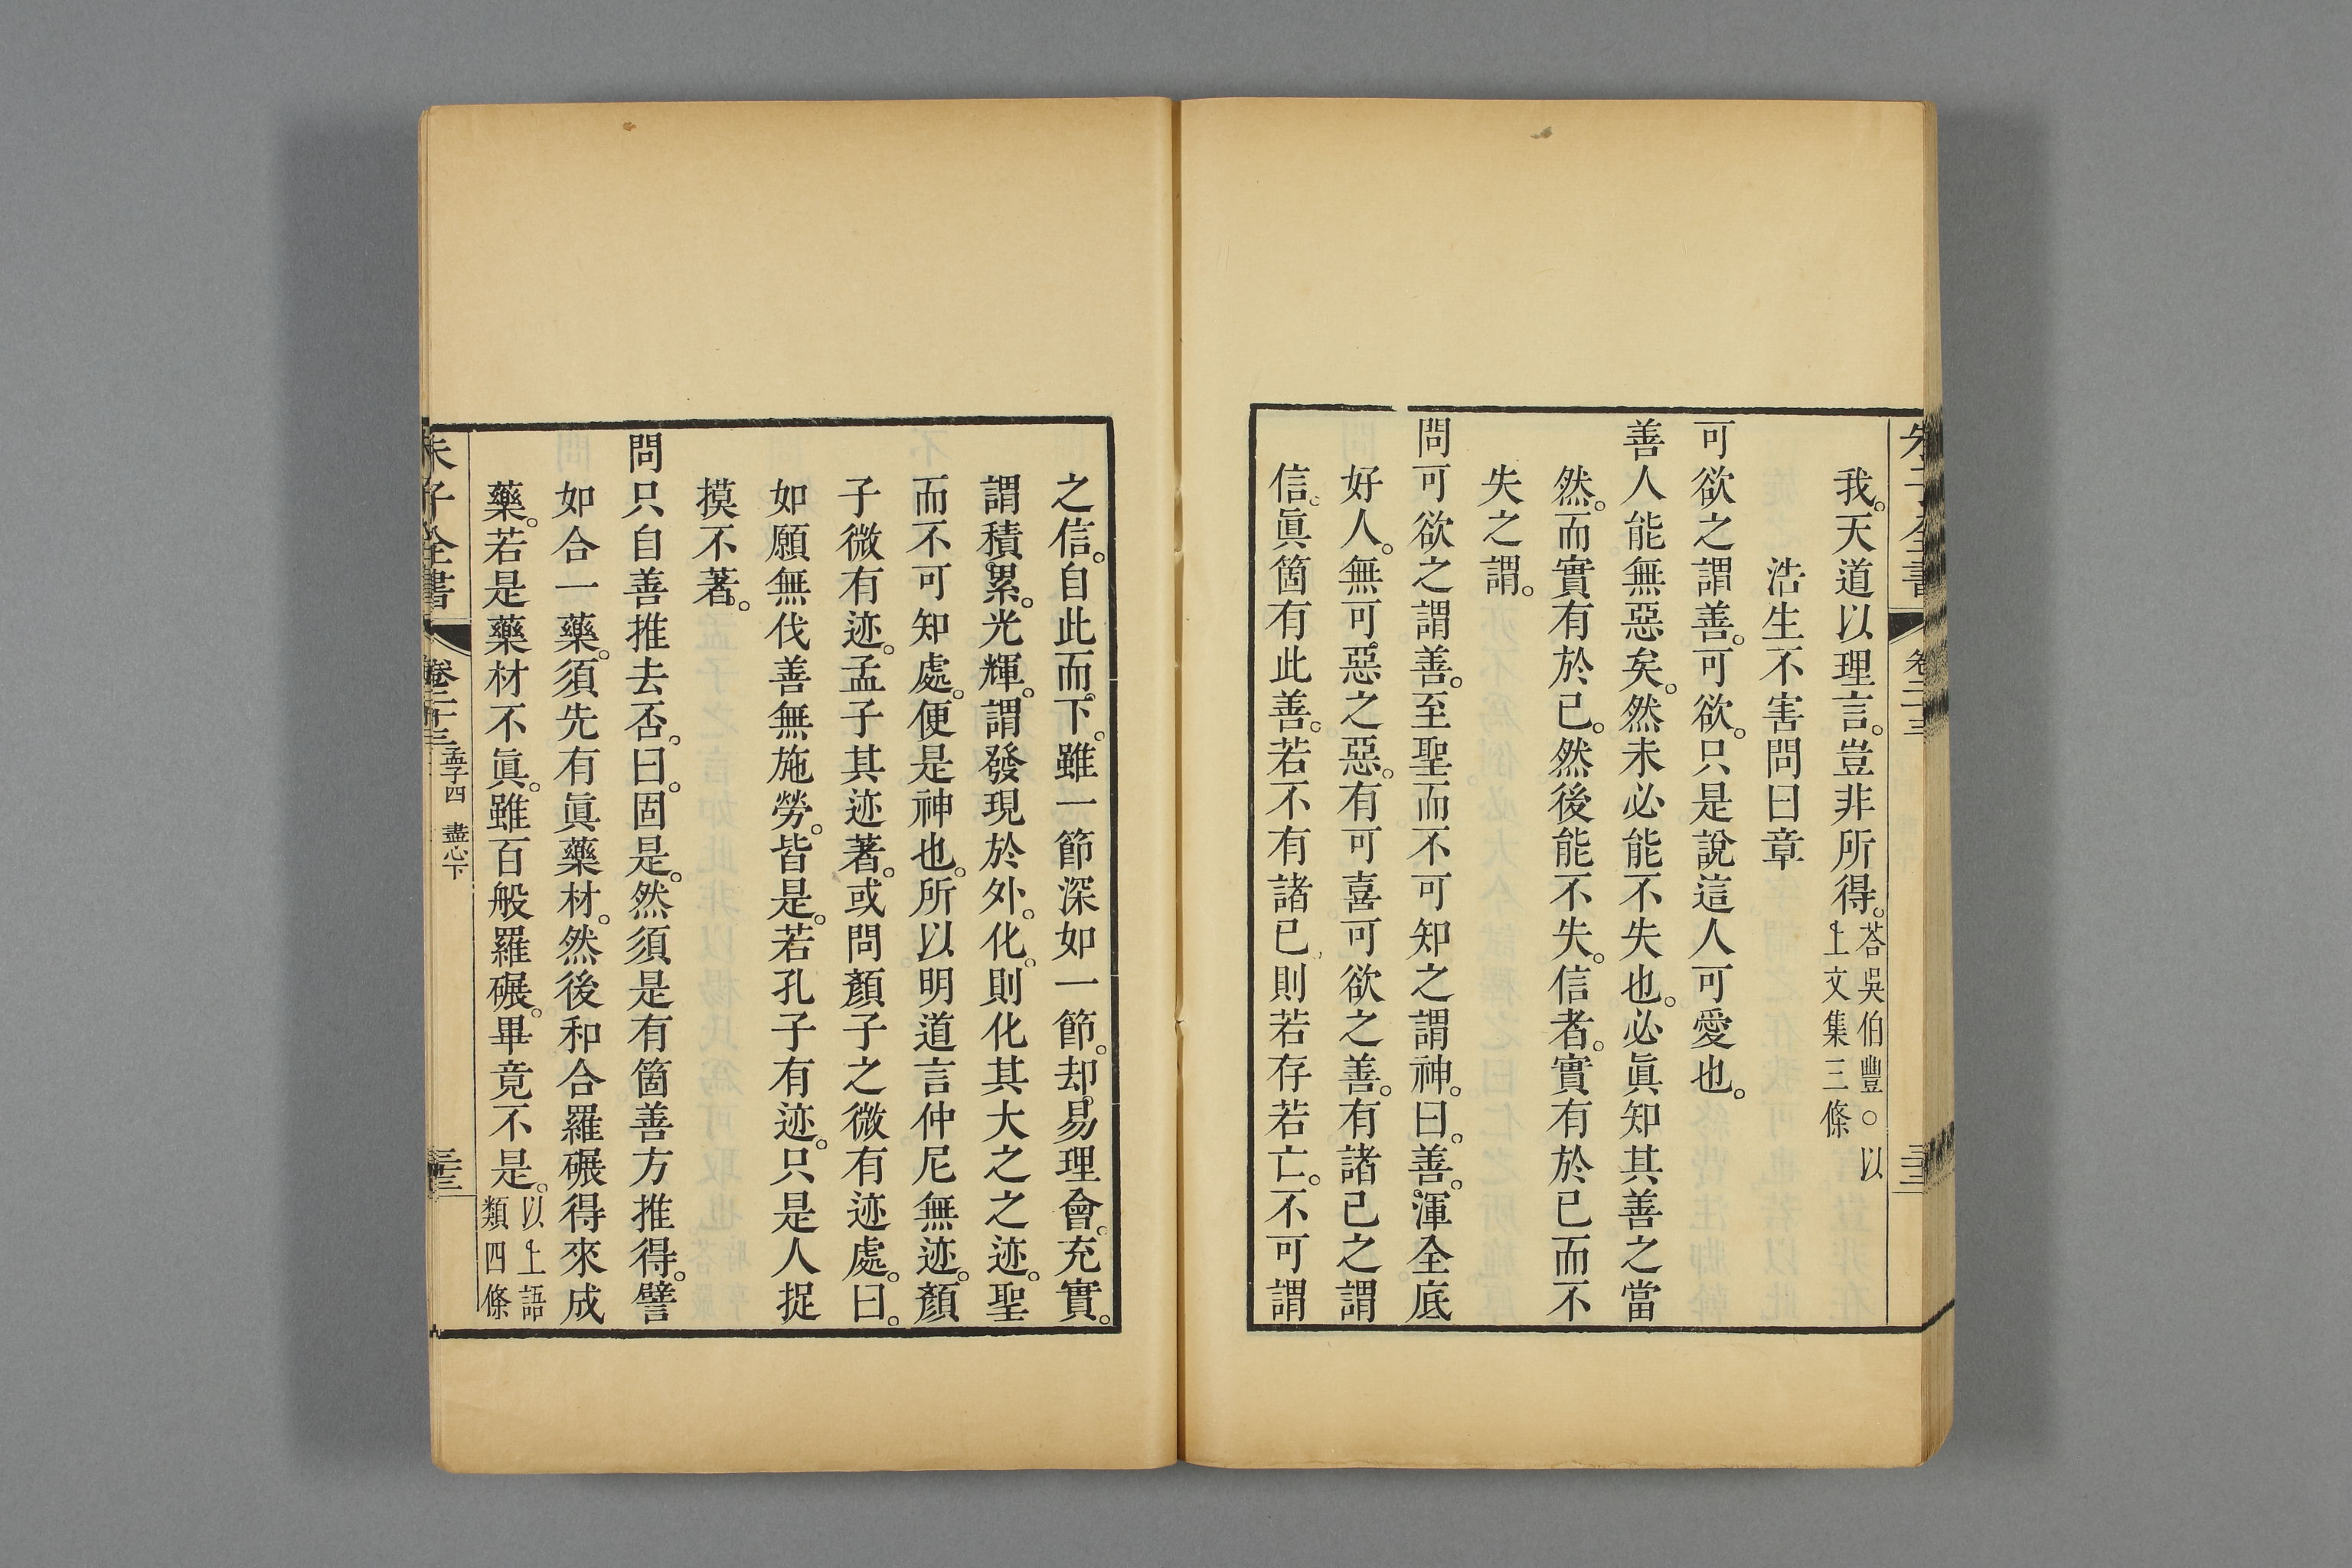 朱子全書 卷二十三
我。天道以理言。豈非所得。荅吳伯豐○以上文集三條
浩生不害問曰章
可欲之謂善。可欲。只是說這人可愛也。
善人能無惡矣。然未必能不失也。必眞知其善之當
然。而實有於己。然後能不失。信者。實有於已而不
失之謂。
問可欲之謂善。至聖而不可知之謂神。曰。善。渾全底
好人。無可惡之惡。有可喜可欲之善。有諸己之謂
信。眞箇有此善。若不有諸已、則若存若亡。不可謂
之信。自此而下。雖一節深如一節。却易理會。充實。
謂積累。光輝。謂發現於外。化。則化其大之之迹。聖
而不可知處。便是神也。所以明道言仲尼無迹。顏
子微有迹。孟子其迹著。或問顏子之微有迹處。曰。
如願無伐善無施勞。皆是。若孔子有迹。只是人捉
摸不著。
問只自善推去否。曰。固是。然須是有箇善方推得。譬
如合一藥。須先有眞藥材。然後和合羅碾得來成
藥。若是藥材不眞。雖百般羅碾。畢竟不是。以上語類四條
朱子全書 卷二十三 孟子四 盡心下